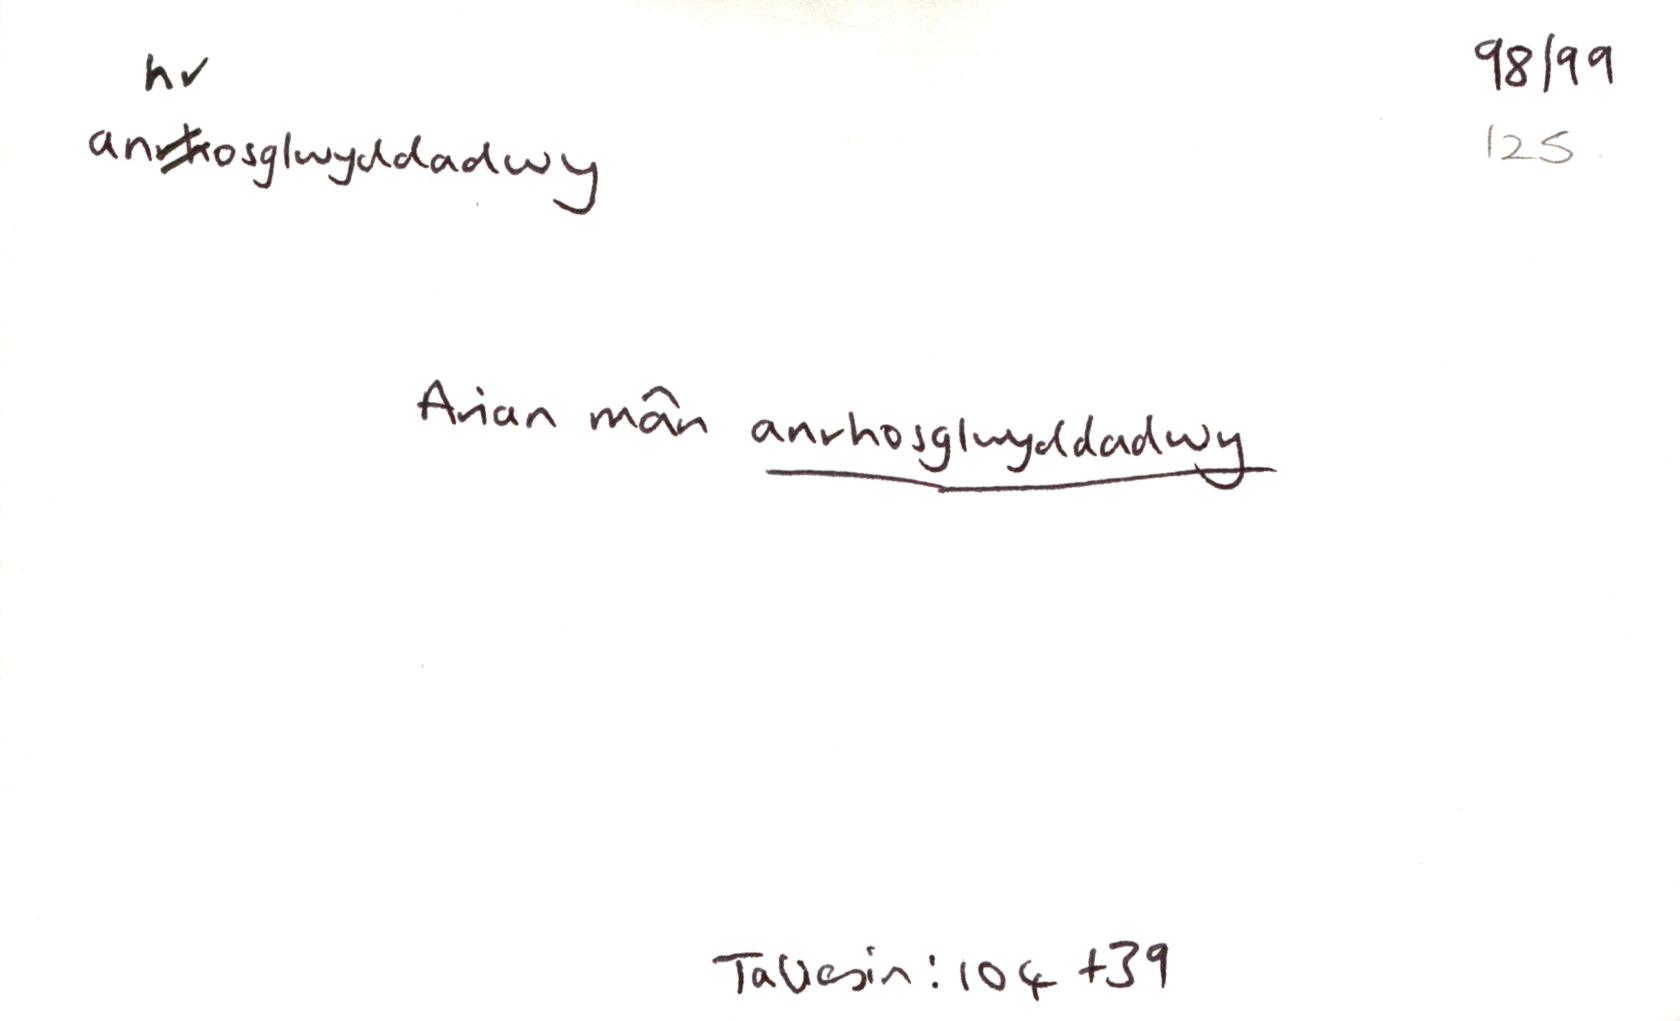 hr 98/99
anrhosglwyddadwy 125
Arian mân anrhosglwyddadwy
Taliesin: 104 + 39